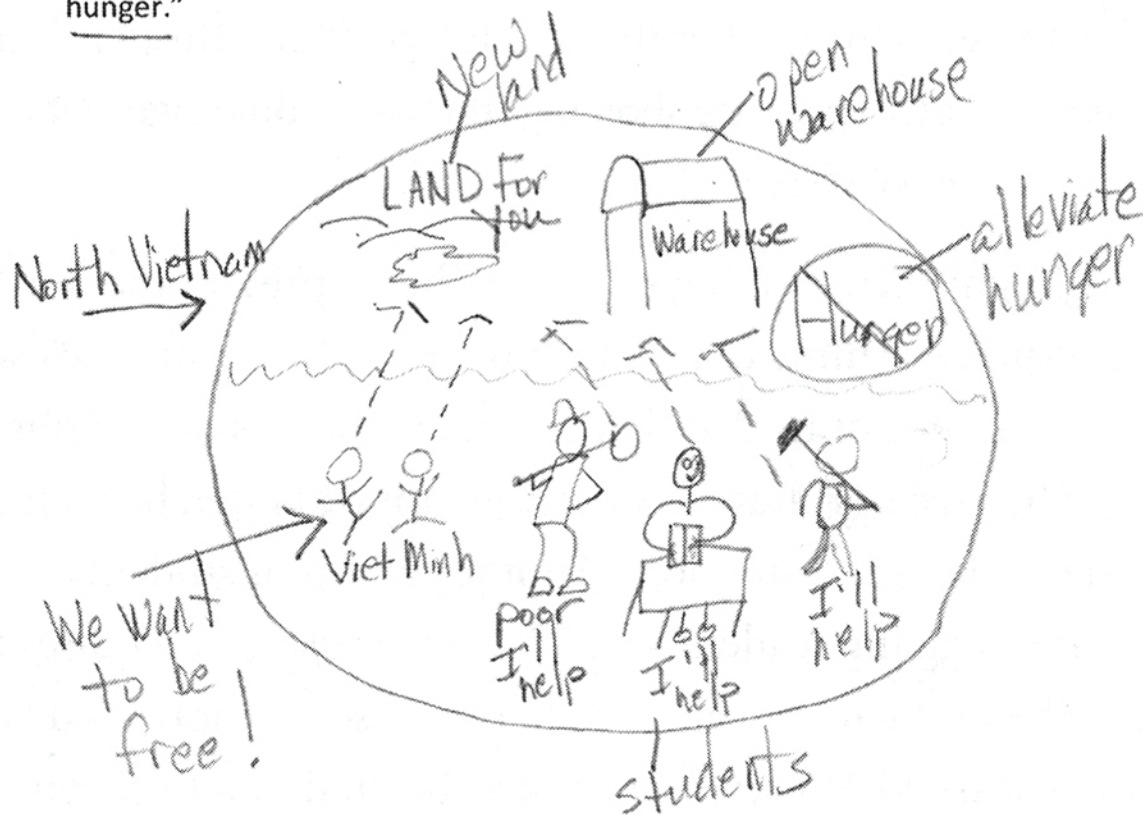 hunger."
New
land
open
warehouse
LAND For
You
Warehouse
alleviate
hunger
North Vietnam
Hunger
Viet Minh
We want
to be
free!
poor
I'll
help
I'll
help
I'll
help
students